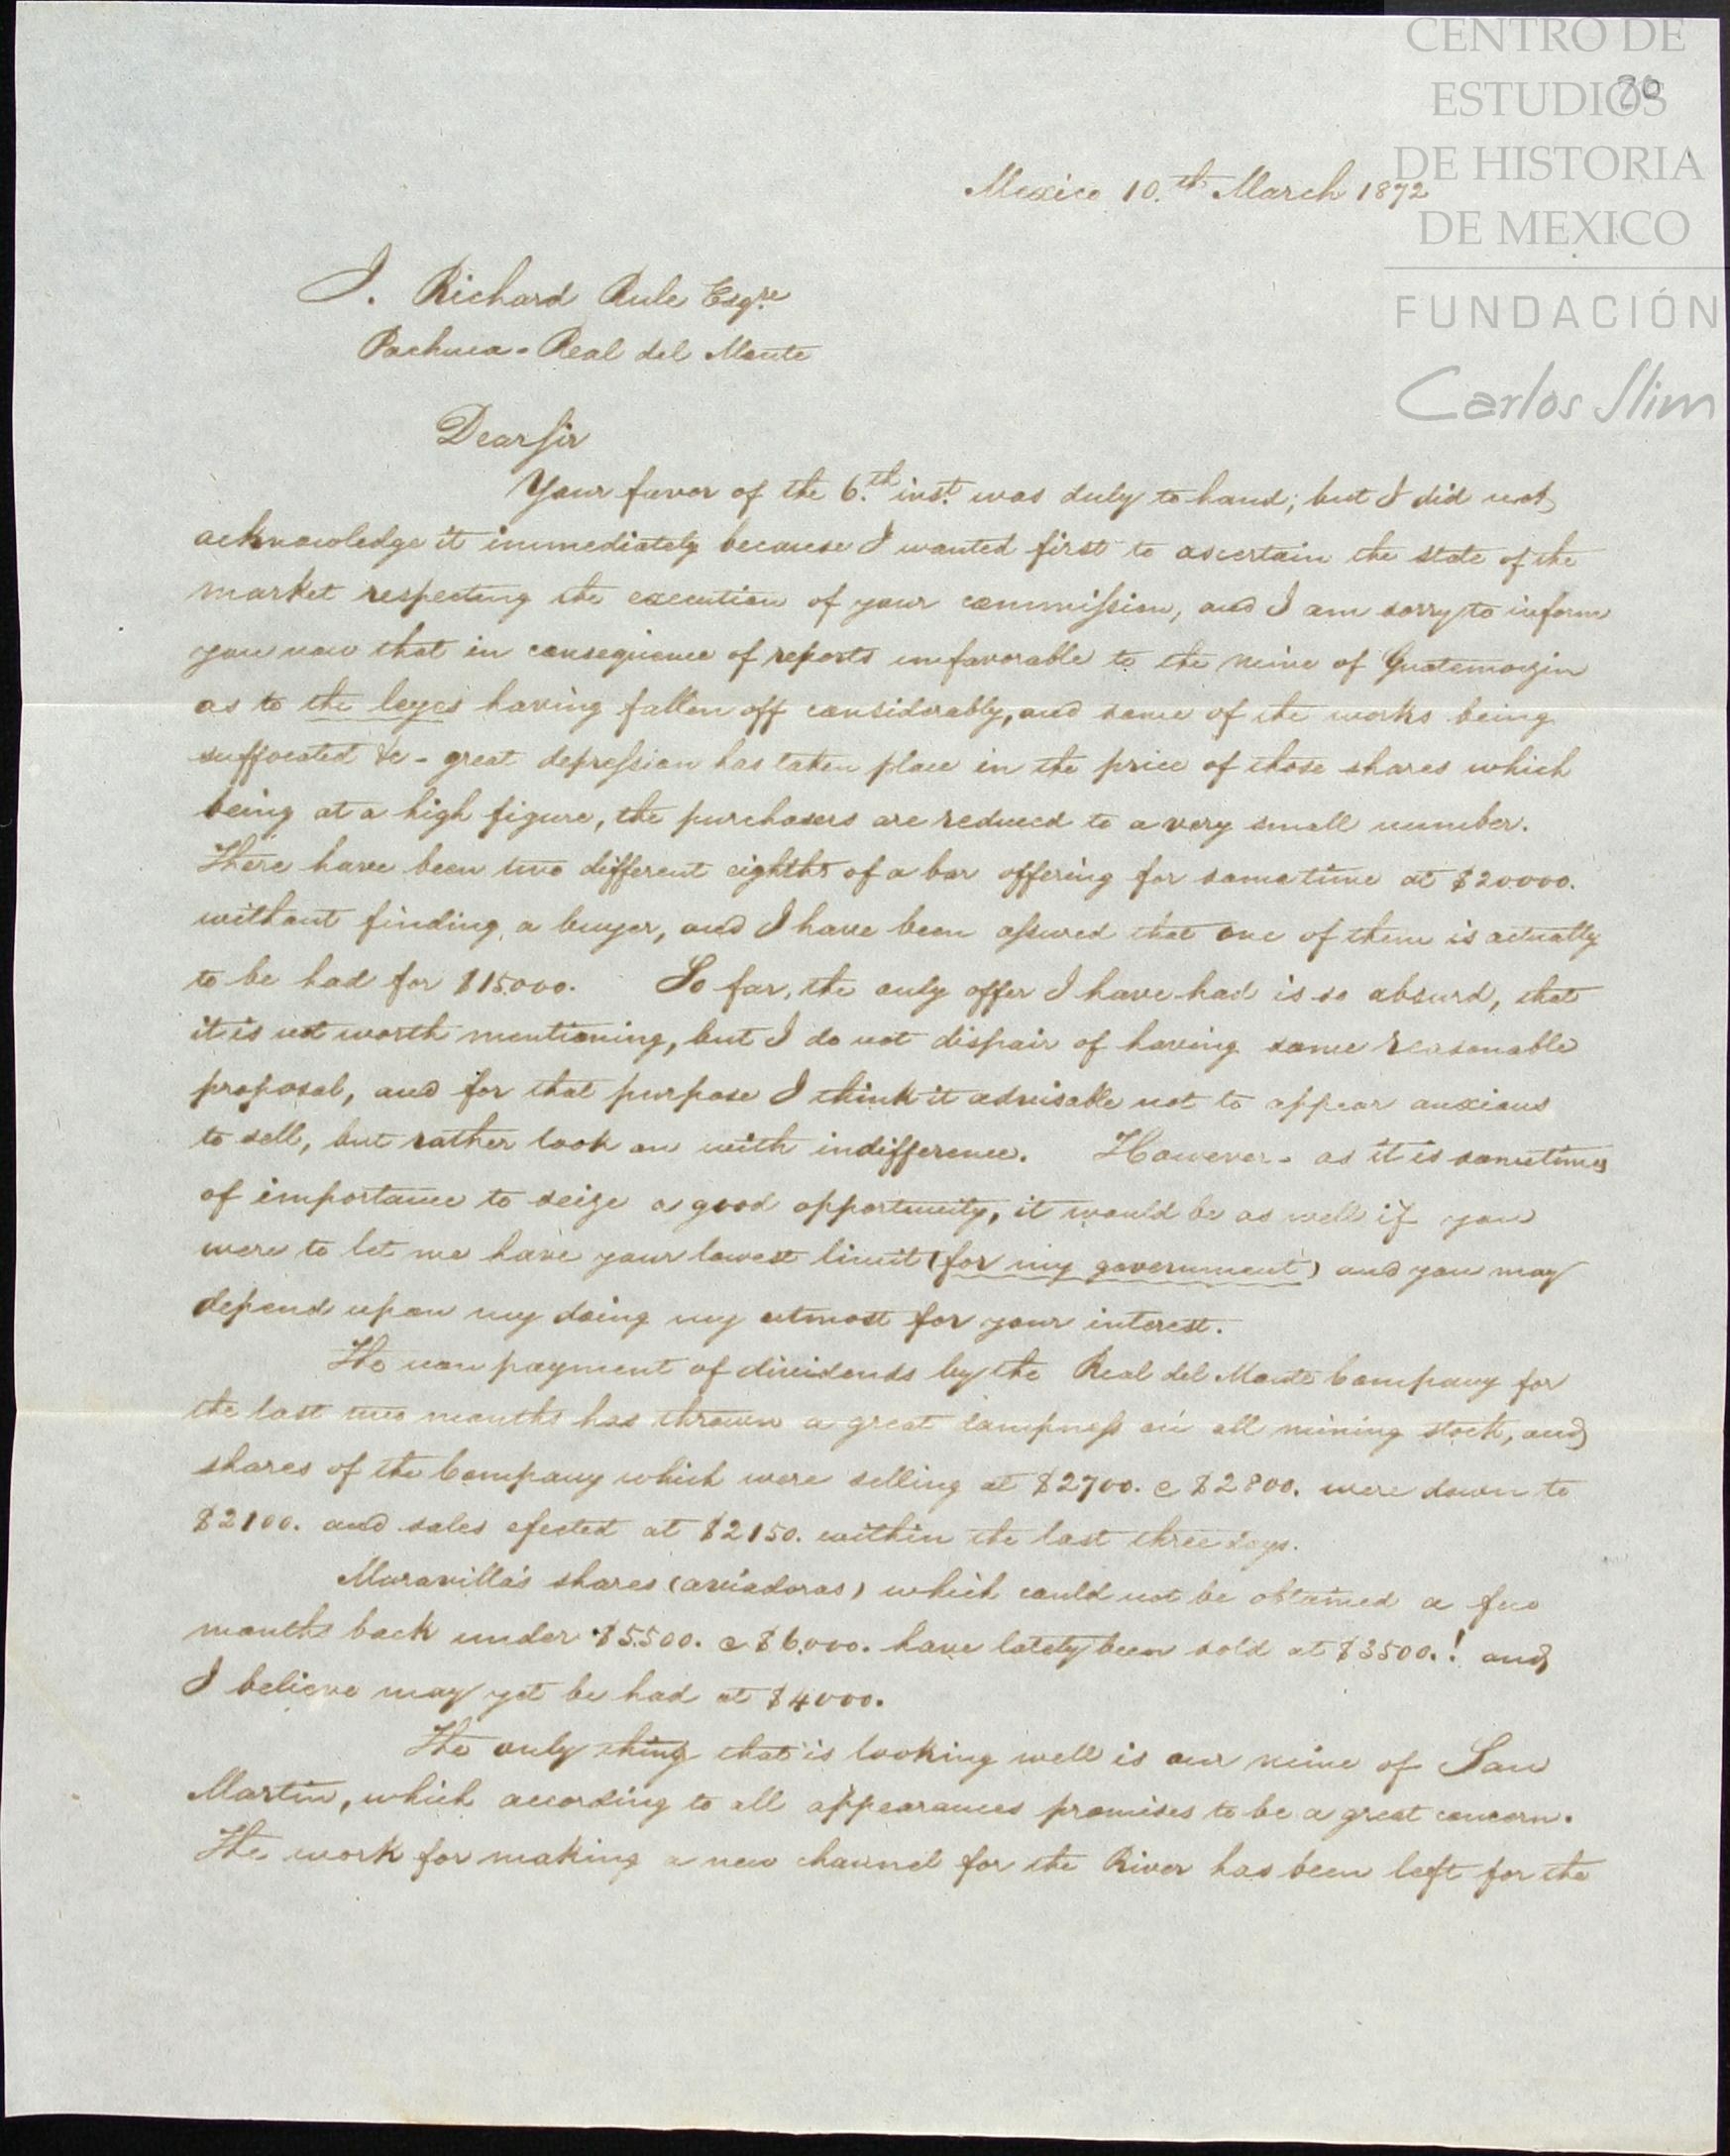 CENTRO DE
ESTUDIOS
20
DE HISTORIA
DE MEXICO
FUNDACIÓN
Carlos Slim
Mexico 10.th March 1872
J. Richard Rule Esqre
Pachuca - Real del Monte
Dear Sir
Your favor of the 6.th inst. was duly to hand; but I did not
acknowledge it immediately because I wanted first to ascertain the state of the
market respecting the execution of your commission, and I am sorry to inform
you now that in consequence of reports unfavorable to the mine of Guatemozin
as to the leyes having fallen off considerably, and some of the works being
suffocated &c - great depression has taken place in the price of those shares which
being at a high figure, the purchasers are reduced to a very small number.
There have been two different eighths of a bar offering for sometime at $20000.
without finding a buyer, and I have been assured that one of them is actually
to be had for $15000. So far, the only offer I have had is so absurd, that
it is not worth mentioning, but I do not dispair of having some reasonable
proposal, and for that purpose I think it advisable not to appear anxious
to sell, but rather look on with indifference. However - as it is sometimes
of importance to seize a good opportunity, it would be as well if you
were to let me have your lowest limit (for my government) and you may
depend upon my doing my utmost for your interest.
The non payment of dividends by the Real del Monte Company for
the last two months has thrown a great dampness on all mining stock, and
shares of the Company which were selling at $2700. @ $2800. were down to
$2100. and sales efected at $2150. within the last three days.
Maravilla's shares (aviadoras) which could not be obtained a few
months back under $5500. @ $6,000. have lately been sold at $3500.! and
I believe may yet be had at $4000.
The only thing that is looking well is our mine of San
Martin, which according to all appearances promises to be a great concern.
The work for making a new channel for the River has been left for the